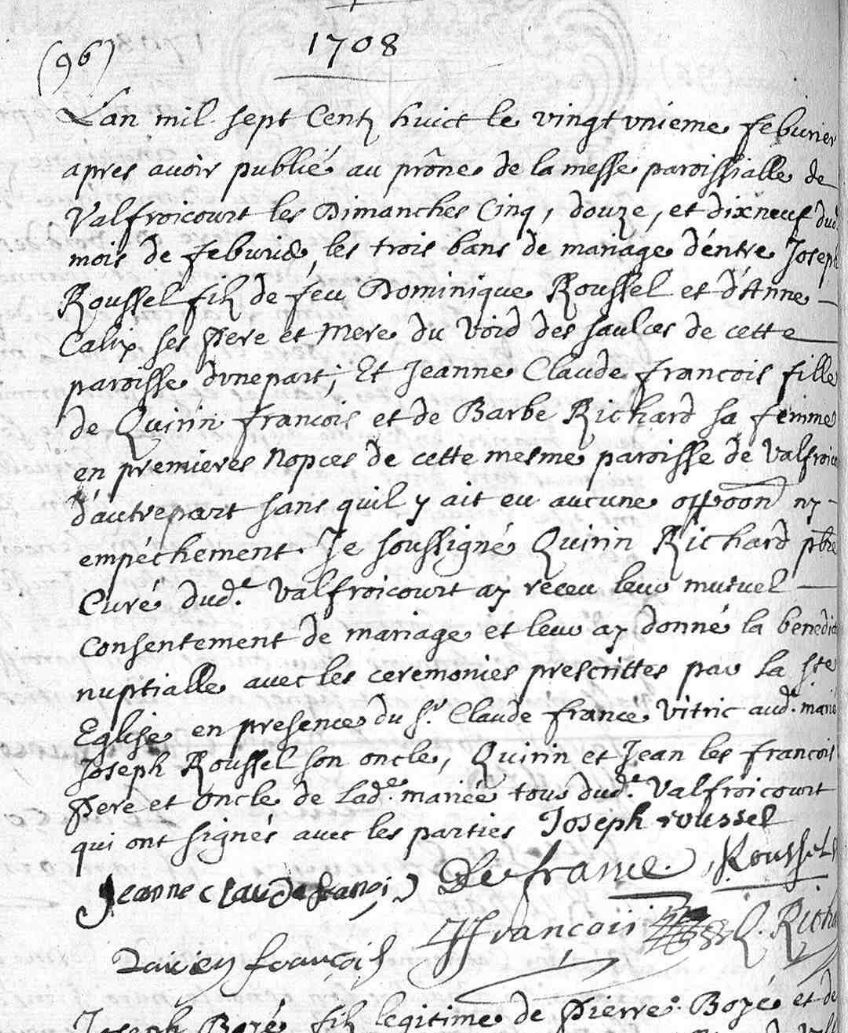 (96)
1708
L'an mil sept Centz huict le vingt vnieme febvrier
apres avoir publié au prône de la messe paroissialle de
Valfroicourt les Dimanches Cinq, douze, et dixneuf dud
mois de febvrier, les trois bans de mariage d'entre Joseph
Roussel filz de feu Dominique Roussel et d'Anne
Calix ses Pere et Mere du Void des saulces de cette
paroisse d'vnepart; Et Jeanne Claude francois fille
de Quirin francois et de Barbe Richard sa femme
en premieres Nopces de cette mesme paroisse de Valfroic
d'autrepart sans quil y ait eu aucune oppoon ny
empéchement. Je soussigné Quirin Richard pbre
Curé dud.t Valfroicourt ay receu leur mutuel
Consentement de mariage et leur ay donné la benedic
nuptialle avec les ceremonies prescrittes par la ste
Eglise en presence du Sr. Claude france Vitric aud. marié
Joseph Roussel son oncle, Quirin et Jean les francois
Pere et Oncle de lad.e mariée tous dud.t Valfroicourt
qui ont signés avec les parties Joseph roussel
Jeanne claude franoi De france Roussel
JFrancois Q. Rich
francois
Joseph Bozé filz legitime de Pierre Bozé et de